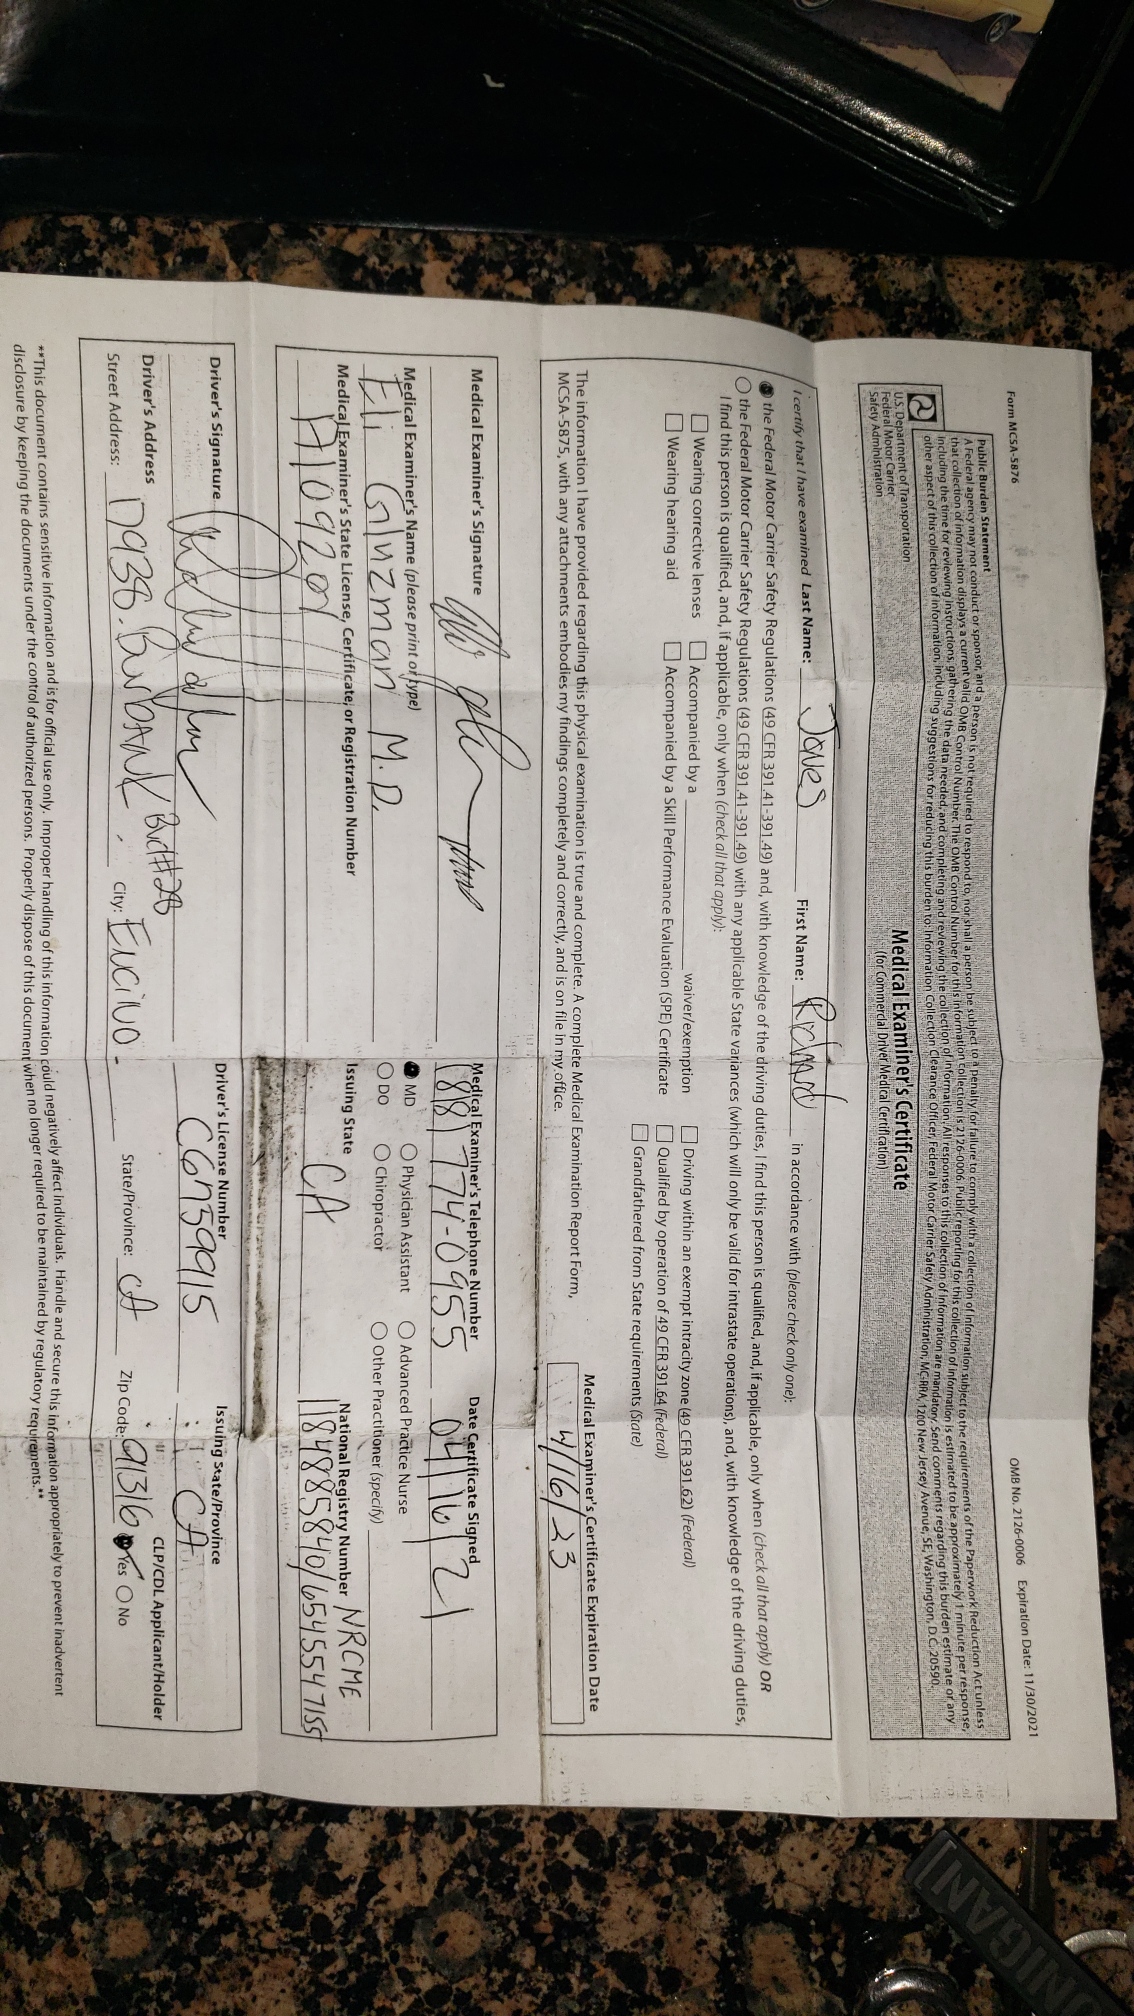 Form MCSA-5876
OMB No. 2126-0006 Expiration Date: 11/30/2021
Public Burden Statement
A Federal agency may not conduct or sponsor, and a person is not required to respond to, nor shall a person be subject to a penalty for failure to comply with a collection of information subject to the requirements of the Paperwork Reduction Act unless
that collection of information displays a current valid OMB Control Number. The OMB Control Number for this information collection is 2126-0006. Public reporting for this collection of information is estimated to be approximately 1 minute per response,
including the time for reviewing instructions, gathering the data needed, and completing and reviewing the collection of information. All responses to this collection of information are mandatory. Send comments regarding this burden estimate or any
other aspect of this collection of information, including suggestions for reducing this burden to: Information Collection Clearance Officer, Federal Motor Carrier Safety Administration, MC-RRA, 1200 New Jersey Avenue, SE, Washington, D.C. 20590.
U.S. Department of Transportation
Federal Motor Carrier
Safety Administration
Medical Examiner's Certificate
(for Commercial Driver Medical Certification)
I certify that I have examined Last Name: Jones First Name: in accordance with (please check only one):
the Federal Motor Carrier Safety Regulations (49 CFR 391.41-391.49) and, with knowledge of the driving duties, I find this person is qualified, and, if applicable, only when (check all that apply) OR
the Federal Motor Carrier Safety Regulations (49 CFR 391.41-391.49) with any applicable State variances (which will only be valid for intrastate operations), and, with knowledge of the driving duties,
I find this person is qualified, and, if applicable, only when (check all that apply):
Wearing corrective lenses Accompanied by a waiver/exemption Driving within an exempt intracity zone (49 CFR 391.62) (Federal)
Wearing hearing aid Accompanied by a Skill Performance Evaluation (SPE) Certificate Qualified by operation of 49 CFR 391.64 (Federal)
Grandfathered from State requirements (State)
The information I have provided regarding this physical examination is true and complete. A complete Medical Examination Report Form,
MCSA-5875, with any attachments embodies my findings completely and correctly, and is on file in my office.
Medical Examiner's Certificate Expiration Date
4/16/23
Medical Examiner's Signature Medical Examiner's Telephone Number Date Certificate Signed
774-0955 04/16/21
Medical Examiner's Name (please print or type)
Eli Gluzman M.D.
MD Physician Assistant Advanced Practice Nurse
DO Chiropractor Other Practitioner (specify)
Medical Examiner's State License, Certificate, or Registration Number Issuing State National Registry Number NRCME
A109201 CA
Driver's Signature Driver's License Number Issuing State/Province
CA
Driver's Address CLP/CDL Applicant/Holder
Street Address: 17938. Burbank Blvd #28 City: Encino. State/Province: CA Zip Code: 91316 Yes No
**This document contains sensitive information and is for official use only. Improper handling of this information could negatively affect individuals. Handle and secure this information appropriately to prevent inadvertent
disclosure by keeping the documents under the control of authorized persons. Properly dispose of this document when no longer required to be maintained by regulatory requirements.**